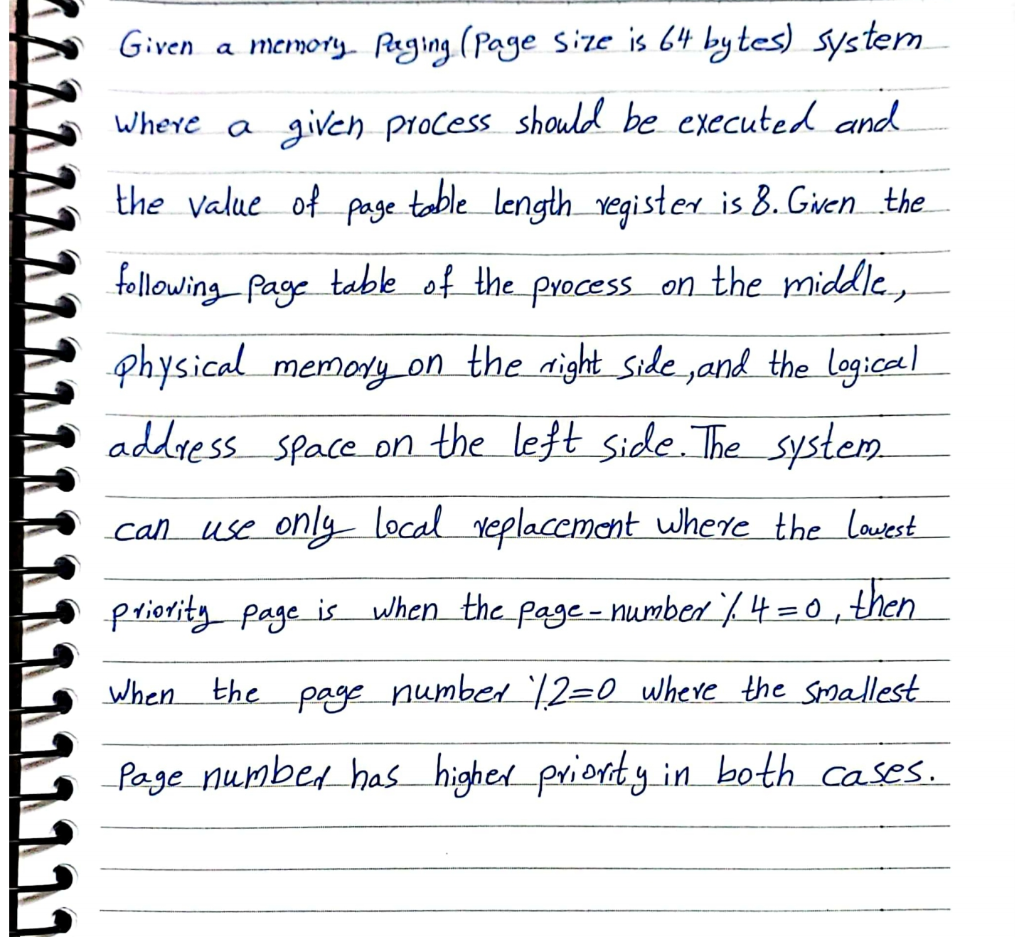 Given a memory Paging (Page size is 64 bytes) system
where a given process should be executed and
the value of page table length register is 8. Given the
following page table of the process on the middle,
physical memory on the right side, and the logical
address space on the left side. The system
can use only local replacement where the lowest
priority page is when the page-number % 4 = 0, then
when the page number % 2 = 0 where the smallest
Page number has higher priority in both cases.